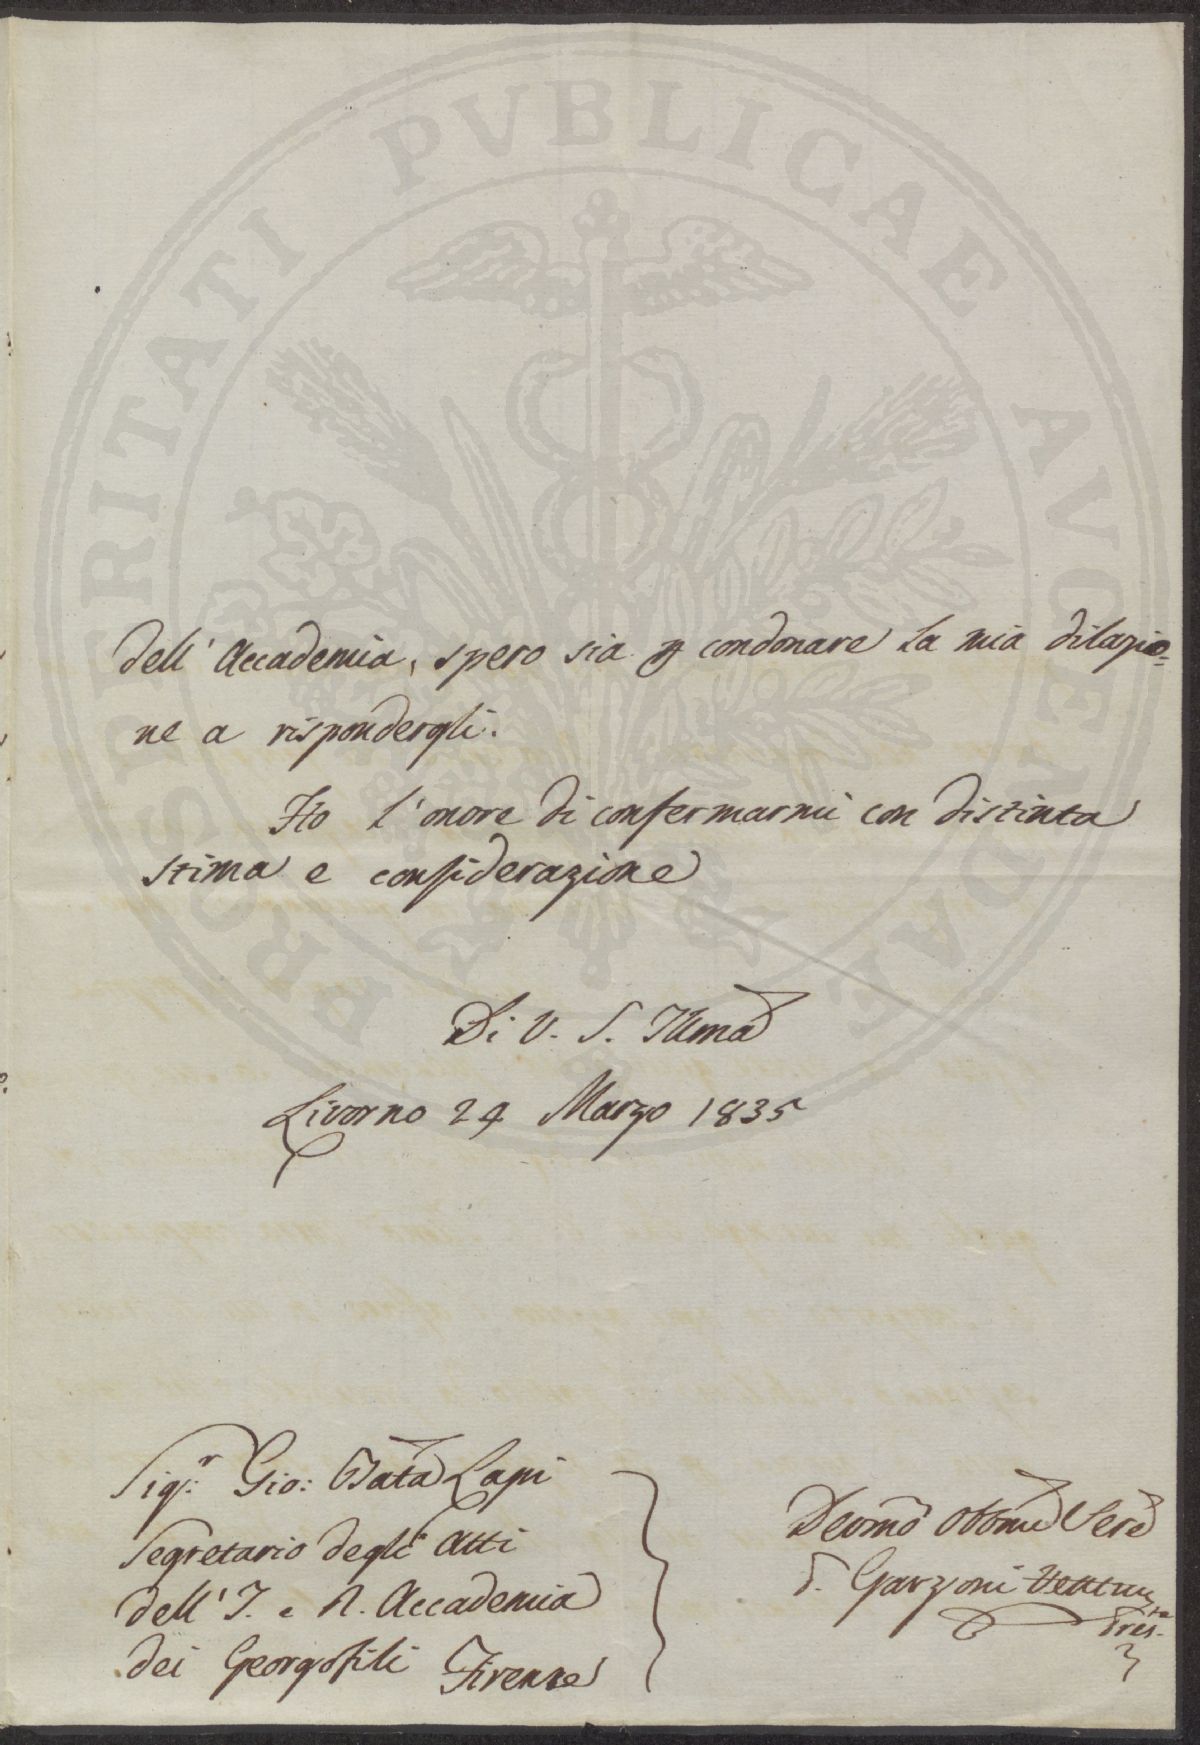 PROSPERITATI PVBLICAE AVGENDAE
dell' Accademia, spero sia p condonare la mia dilazio=
ne a rispondergli.
Ho l' onore di confermarmi con distinta
stima e considerazione
Di V. S. Illma
Livorno 24 Marzo 1835
Sigr: Gio: Batta Lapi
Segretario degli Atti
dell' I. e R. Accademia
dei Georgofili Firenze
Devmo Obbmo Serv
P. Garzoni Venturi
Preste